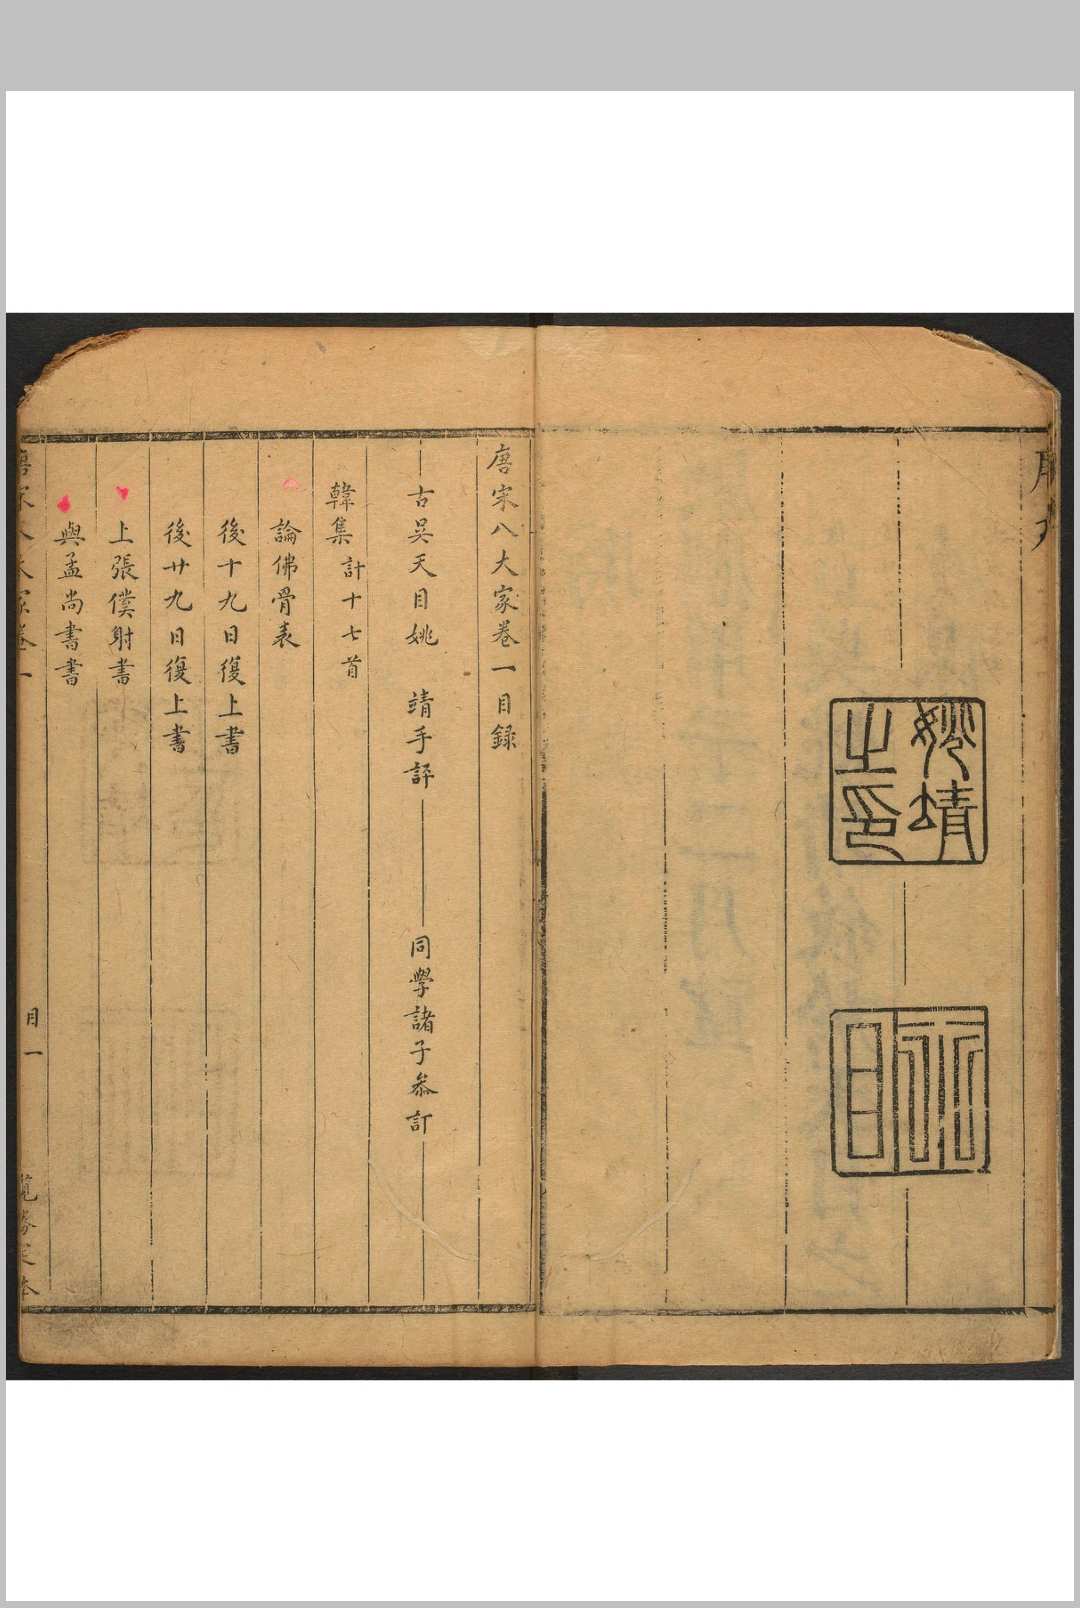 姚靖之印
唐宋八大家卷一目録
古吳天目姚　靖手評　同學諸子叅訂
韓集計十七首
論佛骨表
後十九日復上書
後廿九日復上書
上張僕射書
與孟尚書書
唐宋八大家卷一
目一